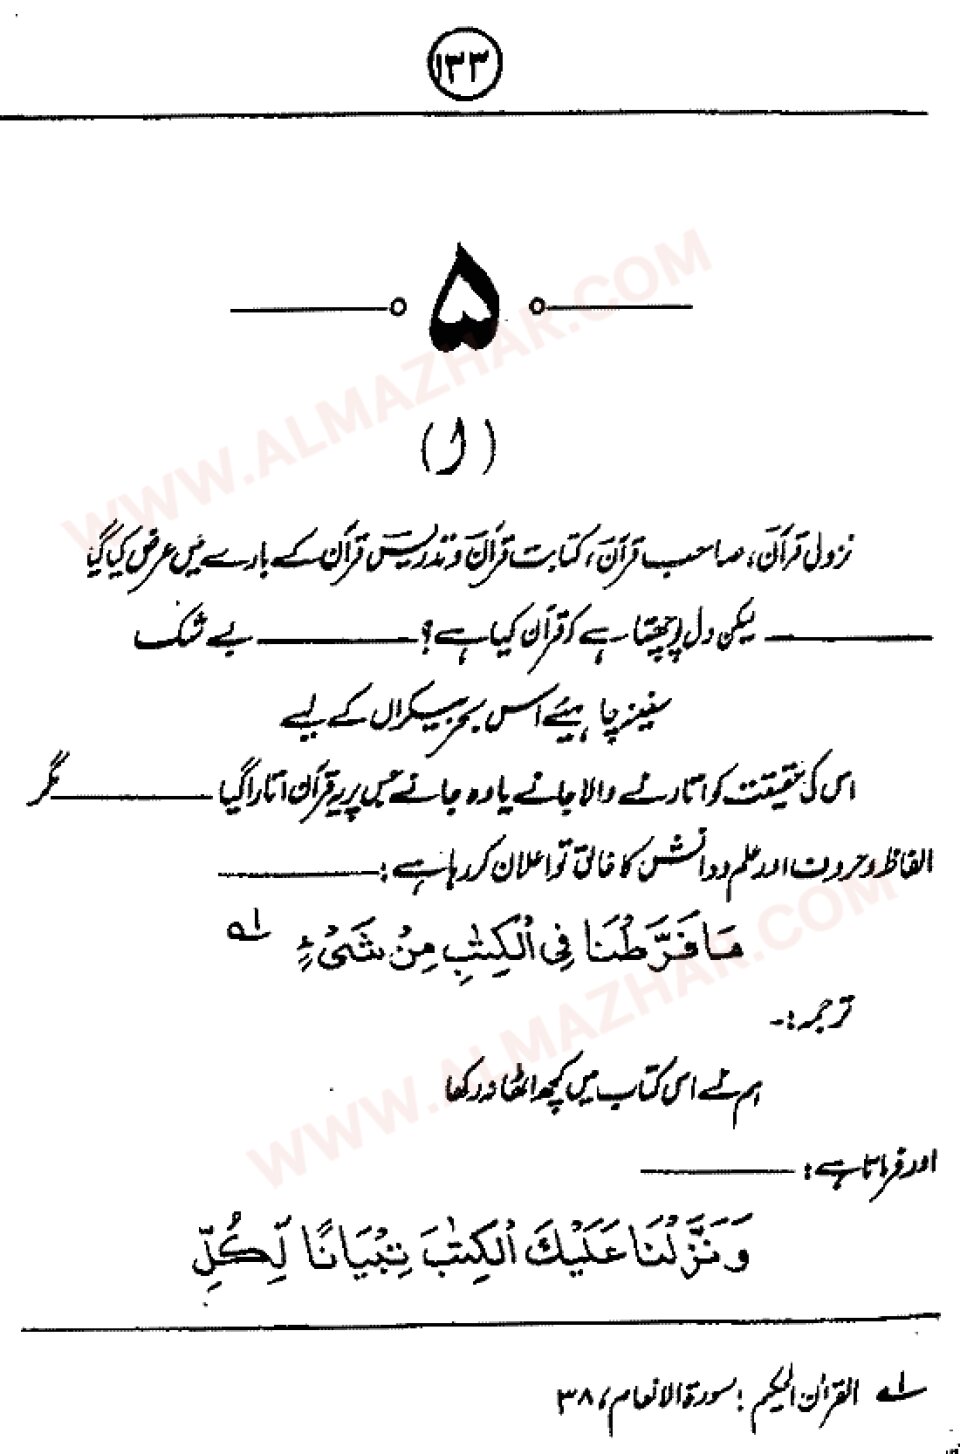 ۱۳۳
۵
(ا)
نزولِ قرآن، صاحبِ قرآن، کتابتِ قرآن و تدریسِ قرآن کے بارے میں عرض کیا گیا
ــــــــ لیکن دل پوچھتا ہے کہ قرآن کیا ہے؟ ــــــــ بے شک
سفینہ چاہیئے اس بحرِ بیکراں کے لیے
اس کی حقیقت کو اتارنے والا جانے یا وہ جانے جس پر یہ قرآن اتارا گیا ــــــــ مگر
الفاظ و حروف اور علم و دانش کا خالق تو اعلان کر رہا ہے: ــــــــ
مَا فَرَّطْنَا فِی الْکِتٰبِ مِنْ شَیْءٍ ۱؎
ترجمہ:۔
ہم نے اس کتاب میں کچھ اٹھا نہ رکھا
اور فرماتا ہے: ــــــــ
وَنَزَّلْنَا عَلَیْكَ الْکِتٰبَ تِبْیَانًا لِّکُلِّ
۱؎ القرآن الحکیم: سورۃ الانعام، ۳۸
WWW.ALMAZHAR.COM
WWW.ALMAZHAR.COM